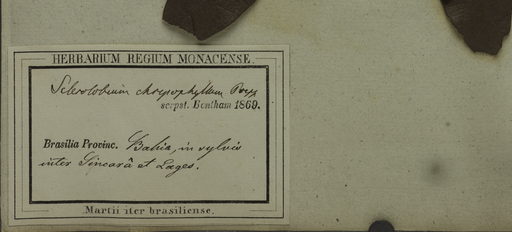 HERBARIUM REGIUM MONACENSE.
Sclerolobium chrysophyllum Poepp
scrpst. Bentham 1869.
Brasilia Provinc. Bahia, in sylvis
inter Sincorâ et Lages.
Martii iter brasiliense.